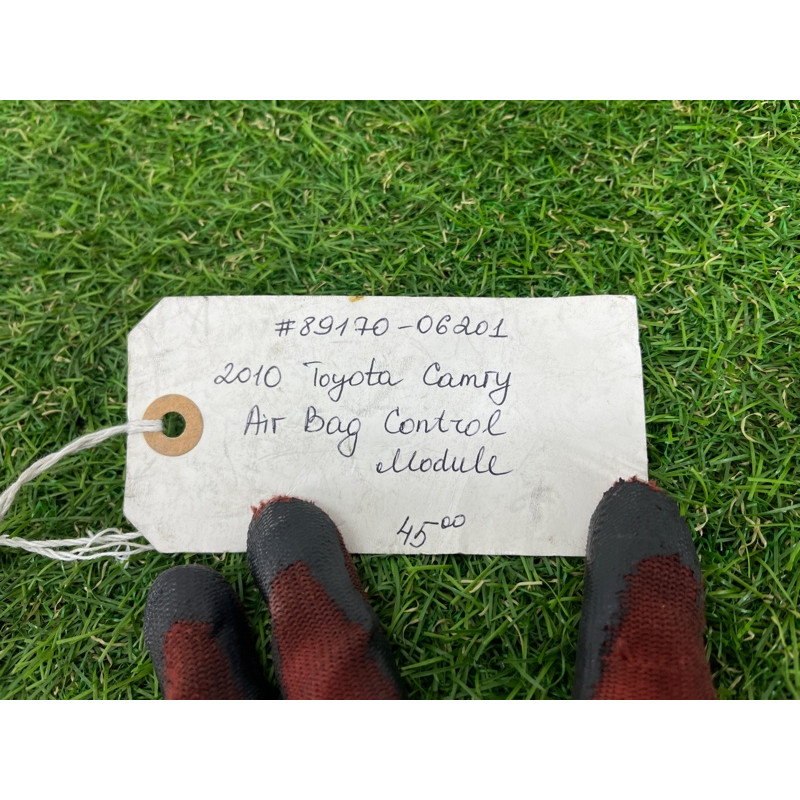 #89170-06201
2010 Toyota Camry
Air Bag Control
Module
45⁰⁰